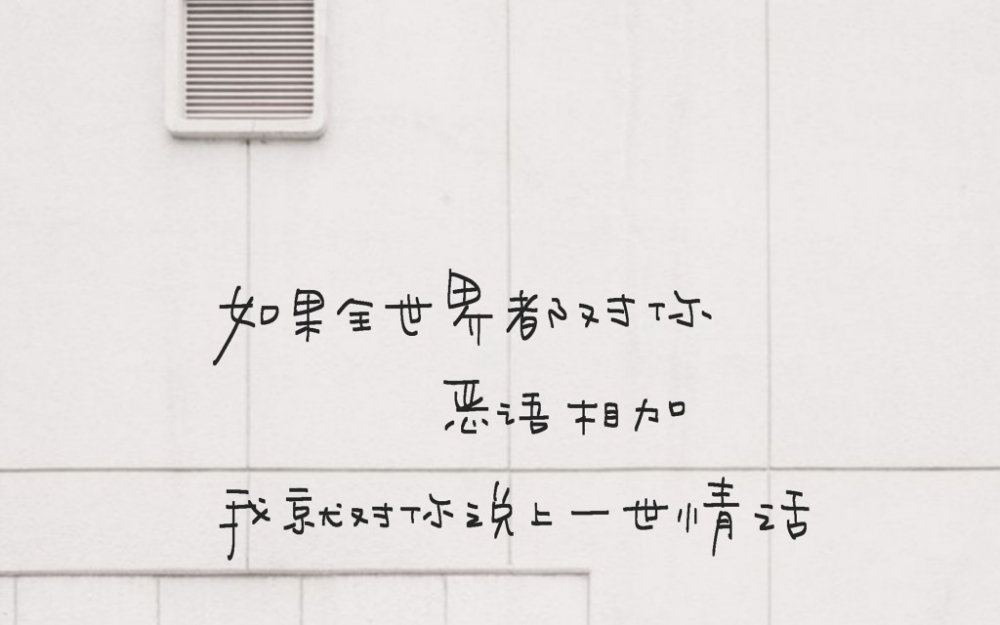 如果全世界都对你
恶语相加
我就对你说上一世情话